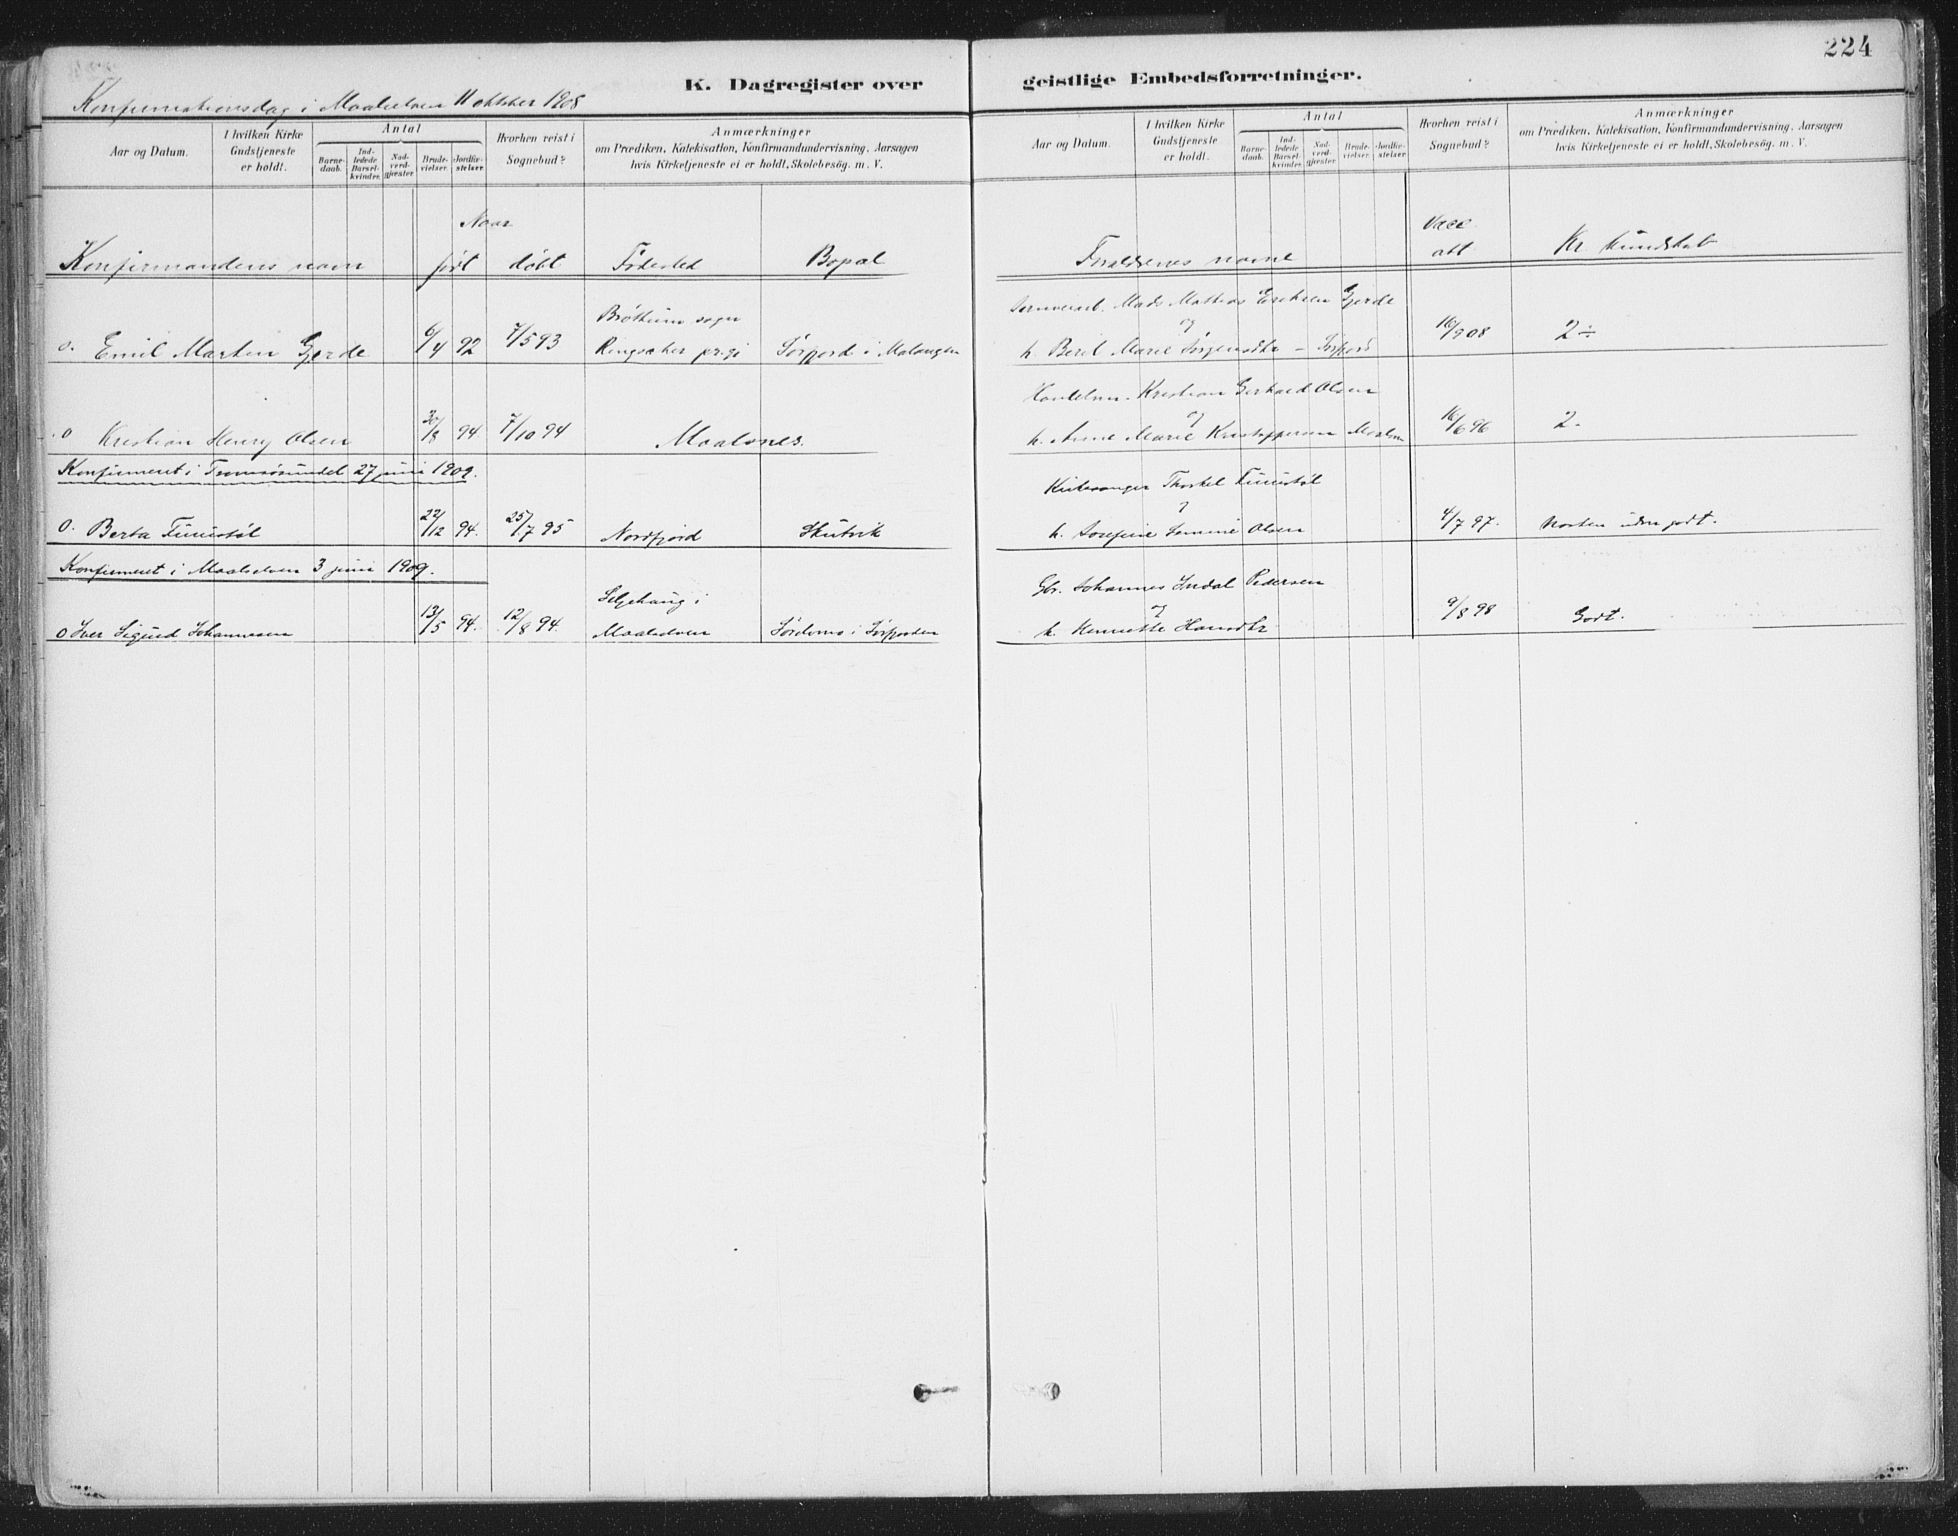 224
K. Dagregister over geistlige Embedsforretninger.
Konfirmationsdag i Maalselven 11 oktober 1908
Aar og Datum. I hvilken Kirke Gudstjeneste er holdt. Antal Barnedaab. Indledede Barselkvinder. Nadverdgjæster. Brudevielser. Jordfæstelser. Hvorhen reist i Sognebud? Anmærkninger om Prædiken, Katekisation, Konfirmandundervisning, Aarsagen hvis Kirketjeneste ei er holdt, Skolebesøg. m. V.
Aar og Datum. I hvilken Kirke Gudstjeneste er holdt. Antal Barnedaab. Indledede Barselkvinder. Nadverdgjæster. Brudevielser. Jordfæstelser. Hvorhen reist i Sognebud? Anmærkninger om Prædiken, Katekisation, Konfirmandundervisning, Aarsagen hvis Kirketjeneste ei er holdt, Skolebesøg. m. V.
Naar Vacc.
Konfirmandens navn født døbt Fødested Bopæl Forældrenes navne att Kr. Kundskab
Brøttum sogn Mads Mathias Eriksen Gjerde
og
o. Emil Martin Gjerde 6/4 92 7/5 93 Ringsaker pr.gj Sørfjord i Malangen h. Beret Marie Jørgensdtr – Sørfjord 16/9 08 2÷
Kristian Gerhard Olsen
og
o Kristian Henry Olsen 30/8 94 7/10 94 Maalsnes. h. Anne Marie Kristoffersen 16/6 96 2.
Konfirmeret i Tromsøsundet 27 juni 1909.
Kirkesanger Thorkel Finnstøl
og
o. Berta Finnstøl 22/12 94. 25/7 95 Nordfjord h. Josefine Olsen 4/7 97. Næsten udm godt.
Konfirmeret i Maalselven 3 juni 1909.
Seljehaug i Gbr. Johannes Indal Pedersen
og
o Iver Sigurd Johannesen 13/5 94. 12/8 94. Maalselven h. Henriette Hansdtr 9/8 98 Godt.